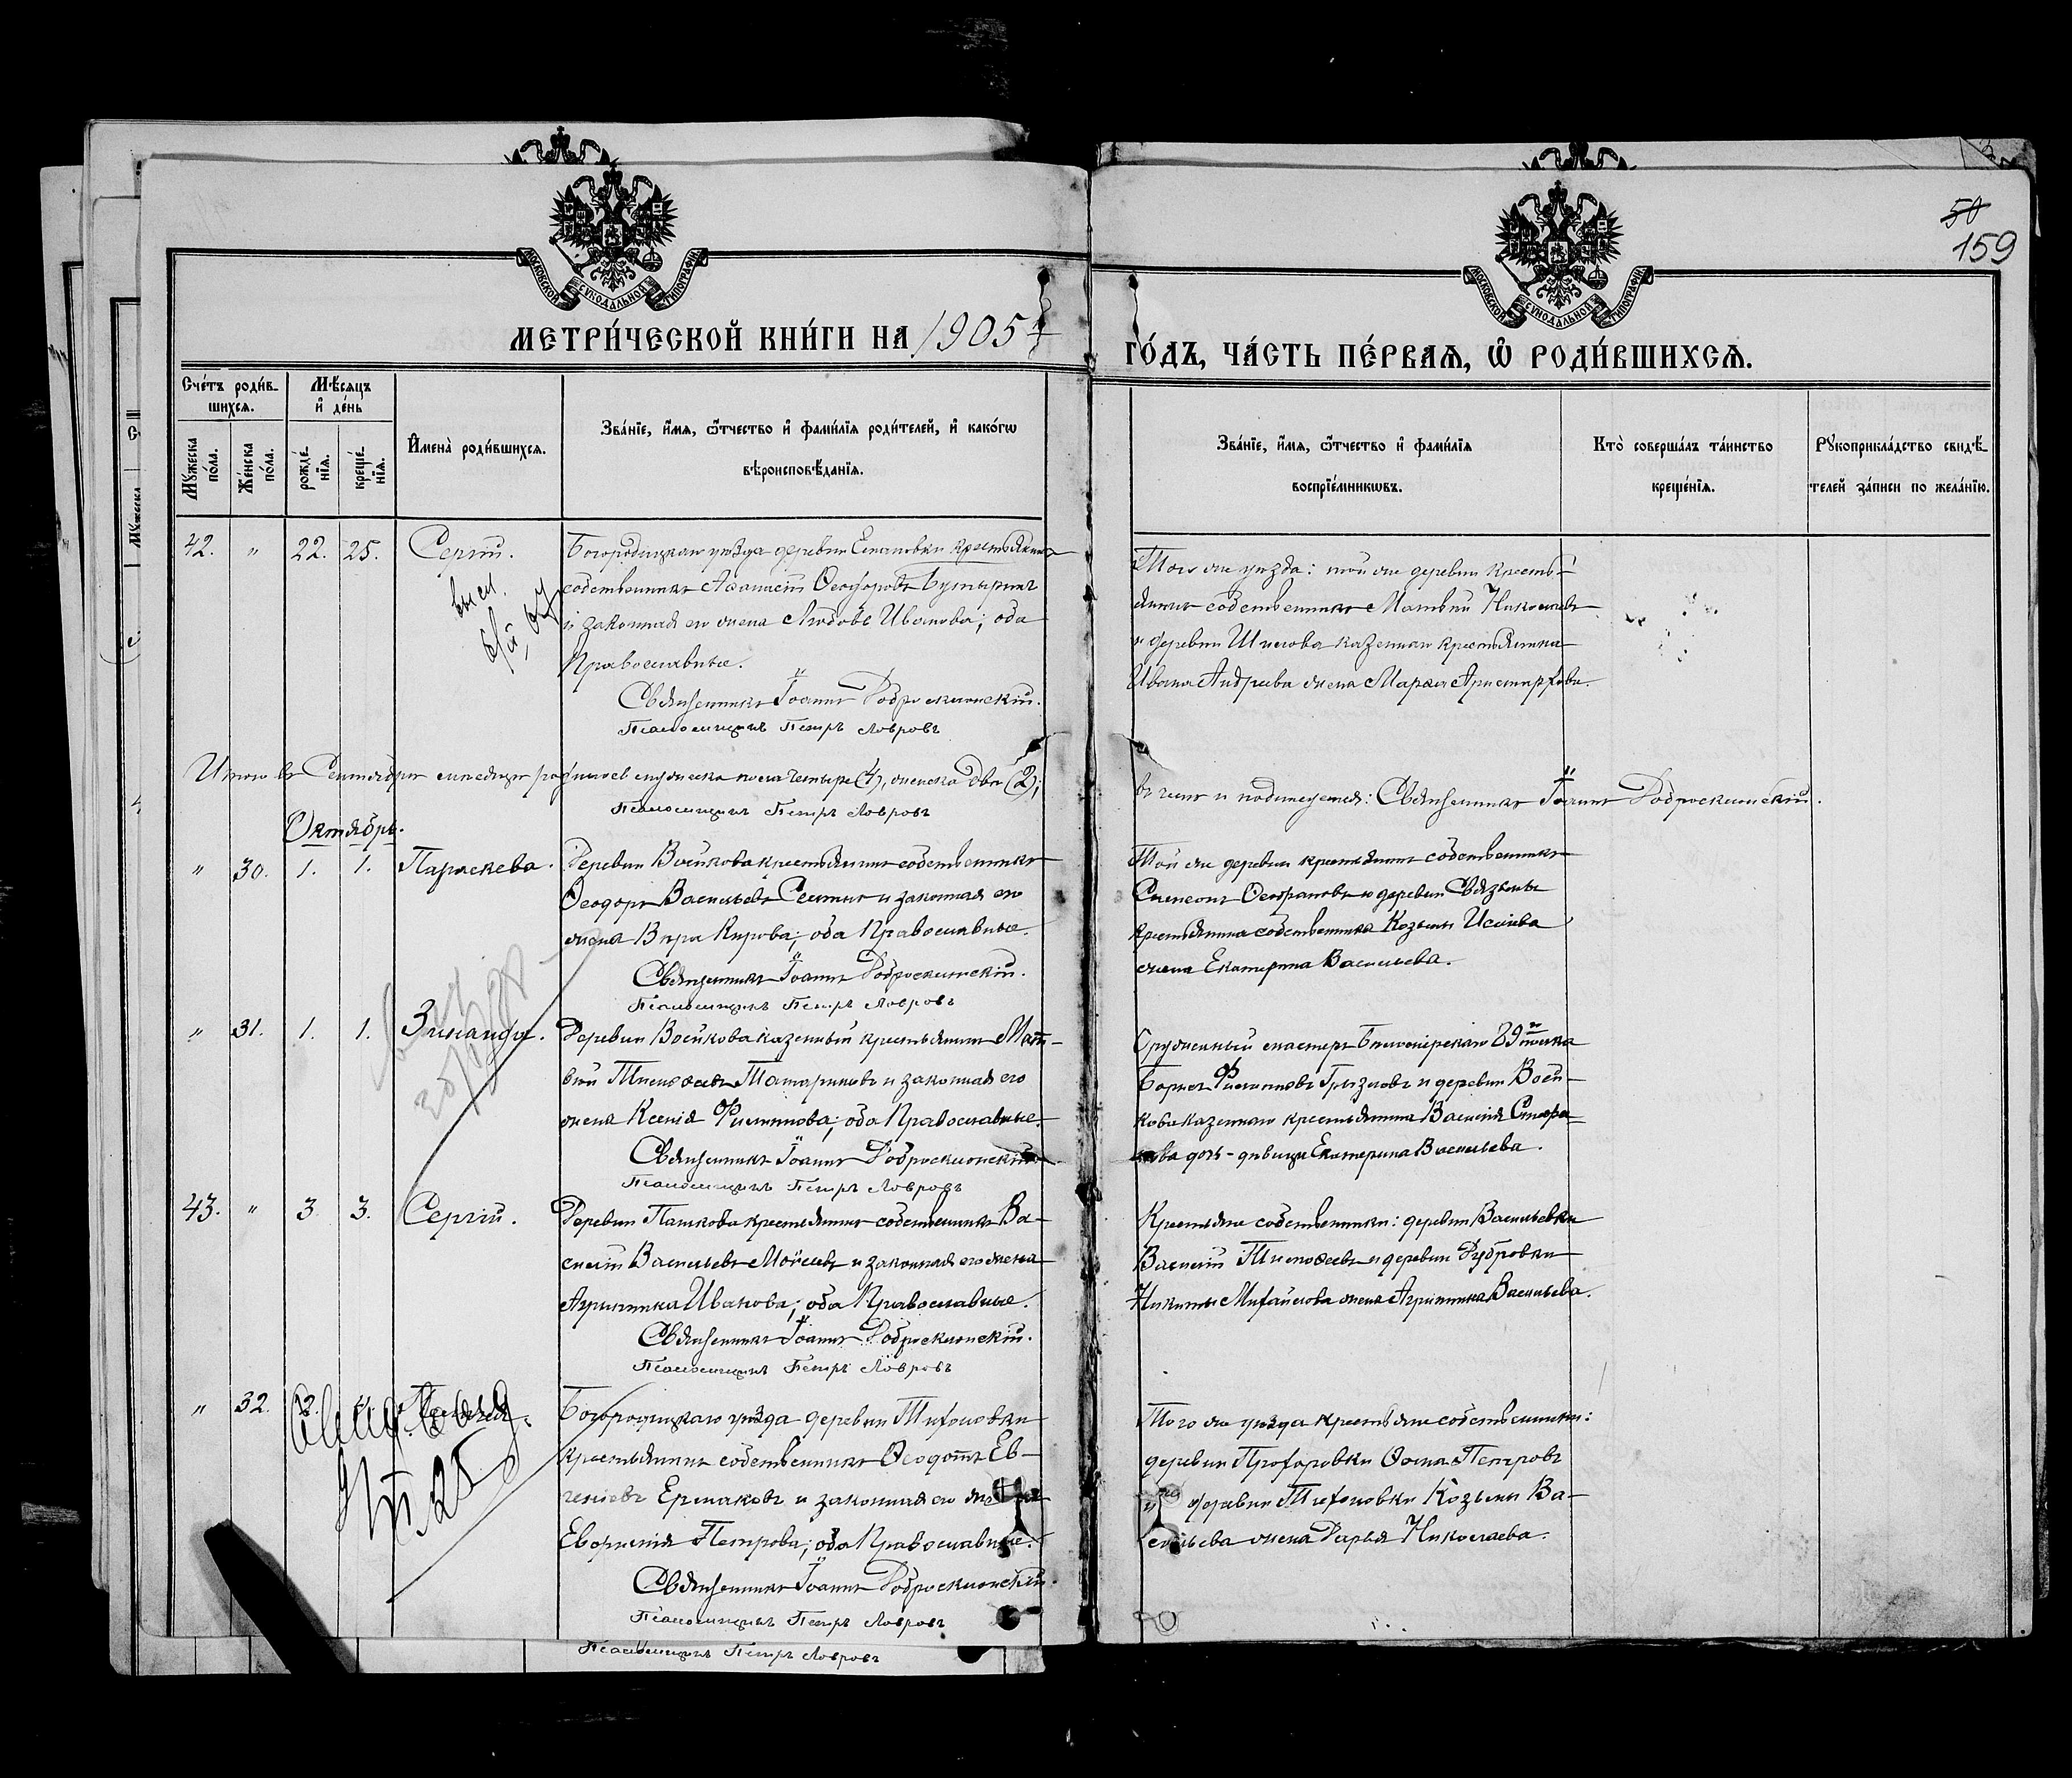 50
159
МОСКОВСКОЙ СѴНОДАЛЬНОЙ ТИПОГРАФІИ
МОСКОВСКОЙ СѴНОДАЛЬНОЙ ТИПОГРАФІИ
МЕТРИ́ЧЕСКОЙ КНИ́ГИ НА 1905 й
ГО́ДЪ, ЧА́СТЬ ПЕ́РВАѦ, Ѽ РОДИ́ВШИХСѦ.
Сче́тъ роди́в-
шихся.
Мѣ́сяцъ
и҆ де́нь
Мꙋ́жеска по́ла.
Же́нска по́ла.
рожде́нїя.
креще́нїя.
И҆мена̀ роди́вшихся.
Зва́нїе, и҆́мя, ѻ҆́тчество и҆ фами́лїя роди́телей, и҆ како́гѡ
вѣроисповѣ́данїя.
Зва́нїе, и҆́мя, ѻ҆́тчество и҆ фами́лїя
воспрїе́мникѡвъ.
Кто̀ соверша́лъ та́инство
креще́нїя.
Рꙋкоприкла́дство свидѣ́-
телей за́писи по жела́нїю.
42. " 22. 25. Сергій.
Богородицкаго уѣзда деревни крестьянинъ
собственникъ Ѳеодоровъ Бутыринъ
и законная его жена Любовь Иванова; оба
Православные.
Священникъ Іоаннъ Доброклонскій.
Псаломщикъ Петръ Лавровъ
Того же уѣзда: той же деревни кресть-
янинъ собственникъ Матвѣй Николаевъ
и деревни казеннаго крестьянина
Ивана Андреева жена Марѳа Аристархова.
Итого въ Сентябрѣ мѣсяцѣ родилось мужеска пола четыре (4), женска двѣ (2);
Псаломщикъ Петръ Лавровъ
въ чемъ и подписуемся: Священникъ Іоаннъ Доброклонскій.
Октябрь.
" 30. 1. 1. Параскева.
Деревни Войкова крестьянинъ собственникъ
Ѳеодоръ Васильевъ и законная его
жена Вѣра Кирова; оба Православные.
Священникъ Іоаннъ Доброклонскій.
Псаломщикъ Петръ Лавровъ
Той же деревни крестьянинъ собственникъ
Симеонъ и деревни
крестьянина собственника Козьмы Исаіева
жена Екатерина Васильева.
" 31. 1. 1. Зинаида.
Деревни Войкова казенный крестьянинъ Мат-
вѣй Тимоѳеевъ Татариновъ и законная его
жена Ксенія Филиппова; оба Православные.
Священникъ Іоаннъ Доброклонскій.
Псаломщикъ Петръ Лавровъ
Оружейный мастеръ 29го полка
Борисъ Филипповъ и деревни Вой-
кова казеннаго крестьянина Василія
дочь-дѣвица Екатерина Васильева.
43. " 3. 3. Сергій.
Деревни Пашкова крестьянинъ собственникъ Ва-
силій Васильевъ Моисеевъ и законная его жена
Агрипина Иванова; оба Православные.
Священникъ Іоаннъ Доброклонскій.
Псаломщикъ Петръ Лавровъ
Крестьяне собственники: деревни Васильевки
Василій Тимоѳеевъ и деревни Дубровки
Никиты Михайлова жена Агрипина Васильева.
" 32.
Богородицкаго уѣзда деревни Тихоновки
крестьянинъ собственникъ Ѳеодотъ Ев-
геніевъ Ермаковъ и законная его жена
Евдокія Петрова; оба Православные.
Священникъ Іоаннъ Доброклонскій.
Псаломщикъ Петръ Лавровъ
Того же уѣзда крестьяне собственники:
деревни Прохоровки Ѳома Петровъ
и деревни Тихоновки Козьмы Ва-
сильева жена Дарья Николаева.
Псаломщикъ Петръ Лавровъ